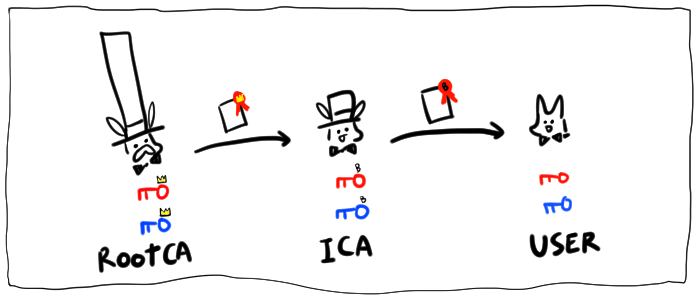 RootCA
ICA
USER